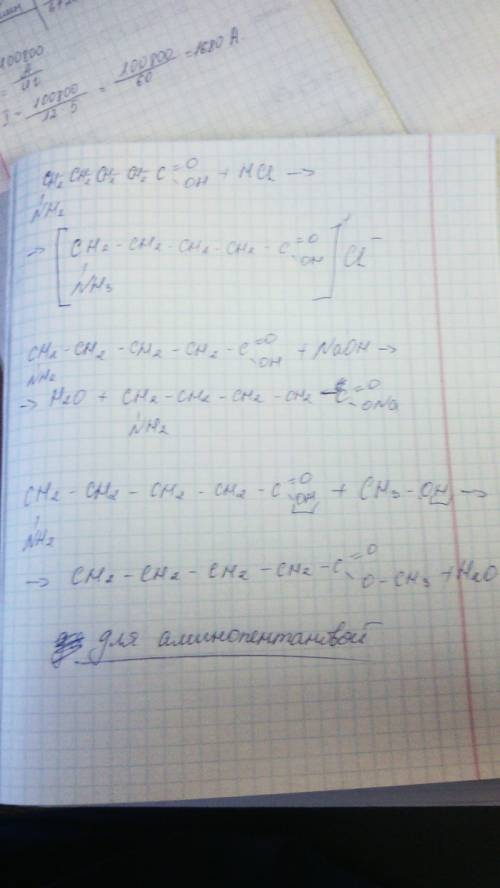 100800
3 = 100800 / 12·5 = 100800 / 60 = 1680 A
CH2-CH2-CH2-CH2-C =O OH + HCl →
NH2
→ [ CH2-CH2-CH2-CH2-C =O OH ]+ Cl−
NH3
CH2-CH2-CH2-CH2-C =O OH + NaOH →
NH2
→ H2O + CH2-CH2-CH2-CH2-C =O ONa
NH2
CH2-CH2-CH2-CH2-C =O OH + CH3-OH →
NH2
→ CH2-CH2-CH2-CH2-C =O O-CH3 + H2O
для аминопентановой